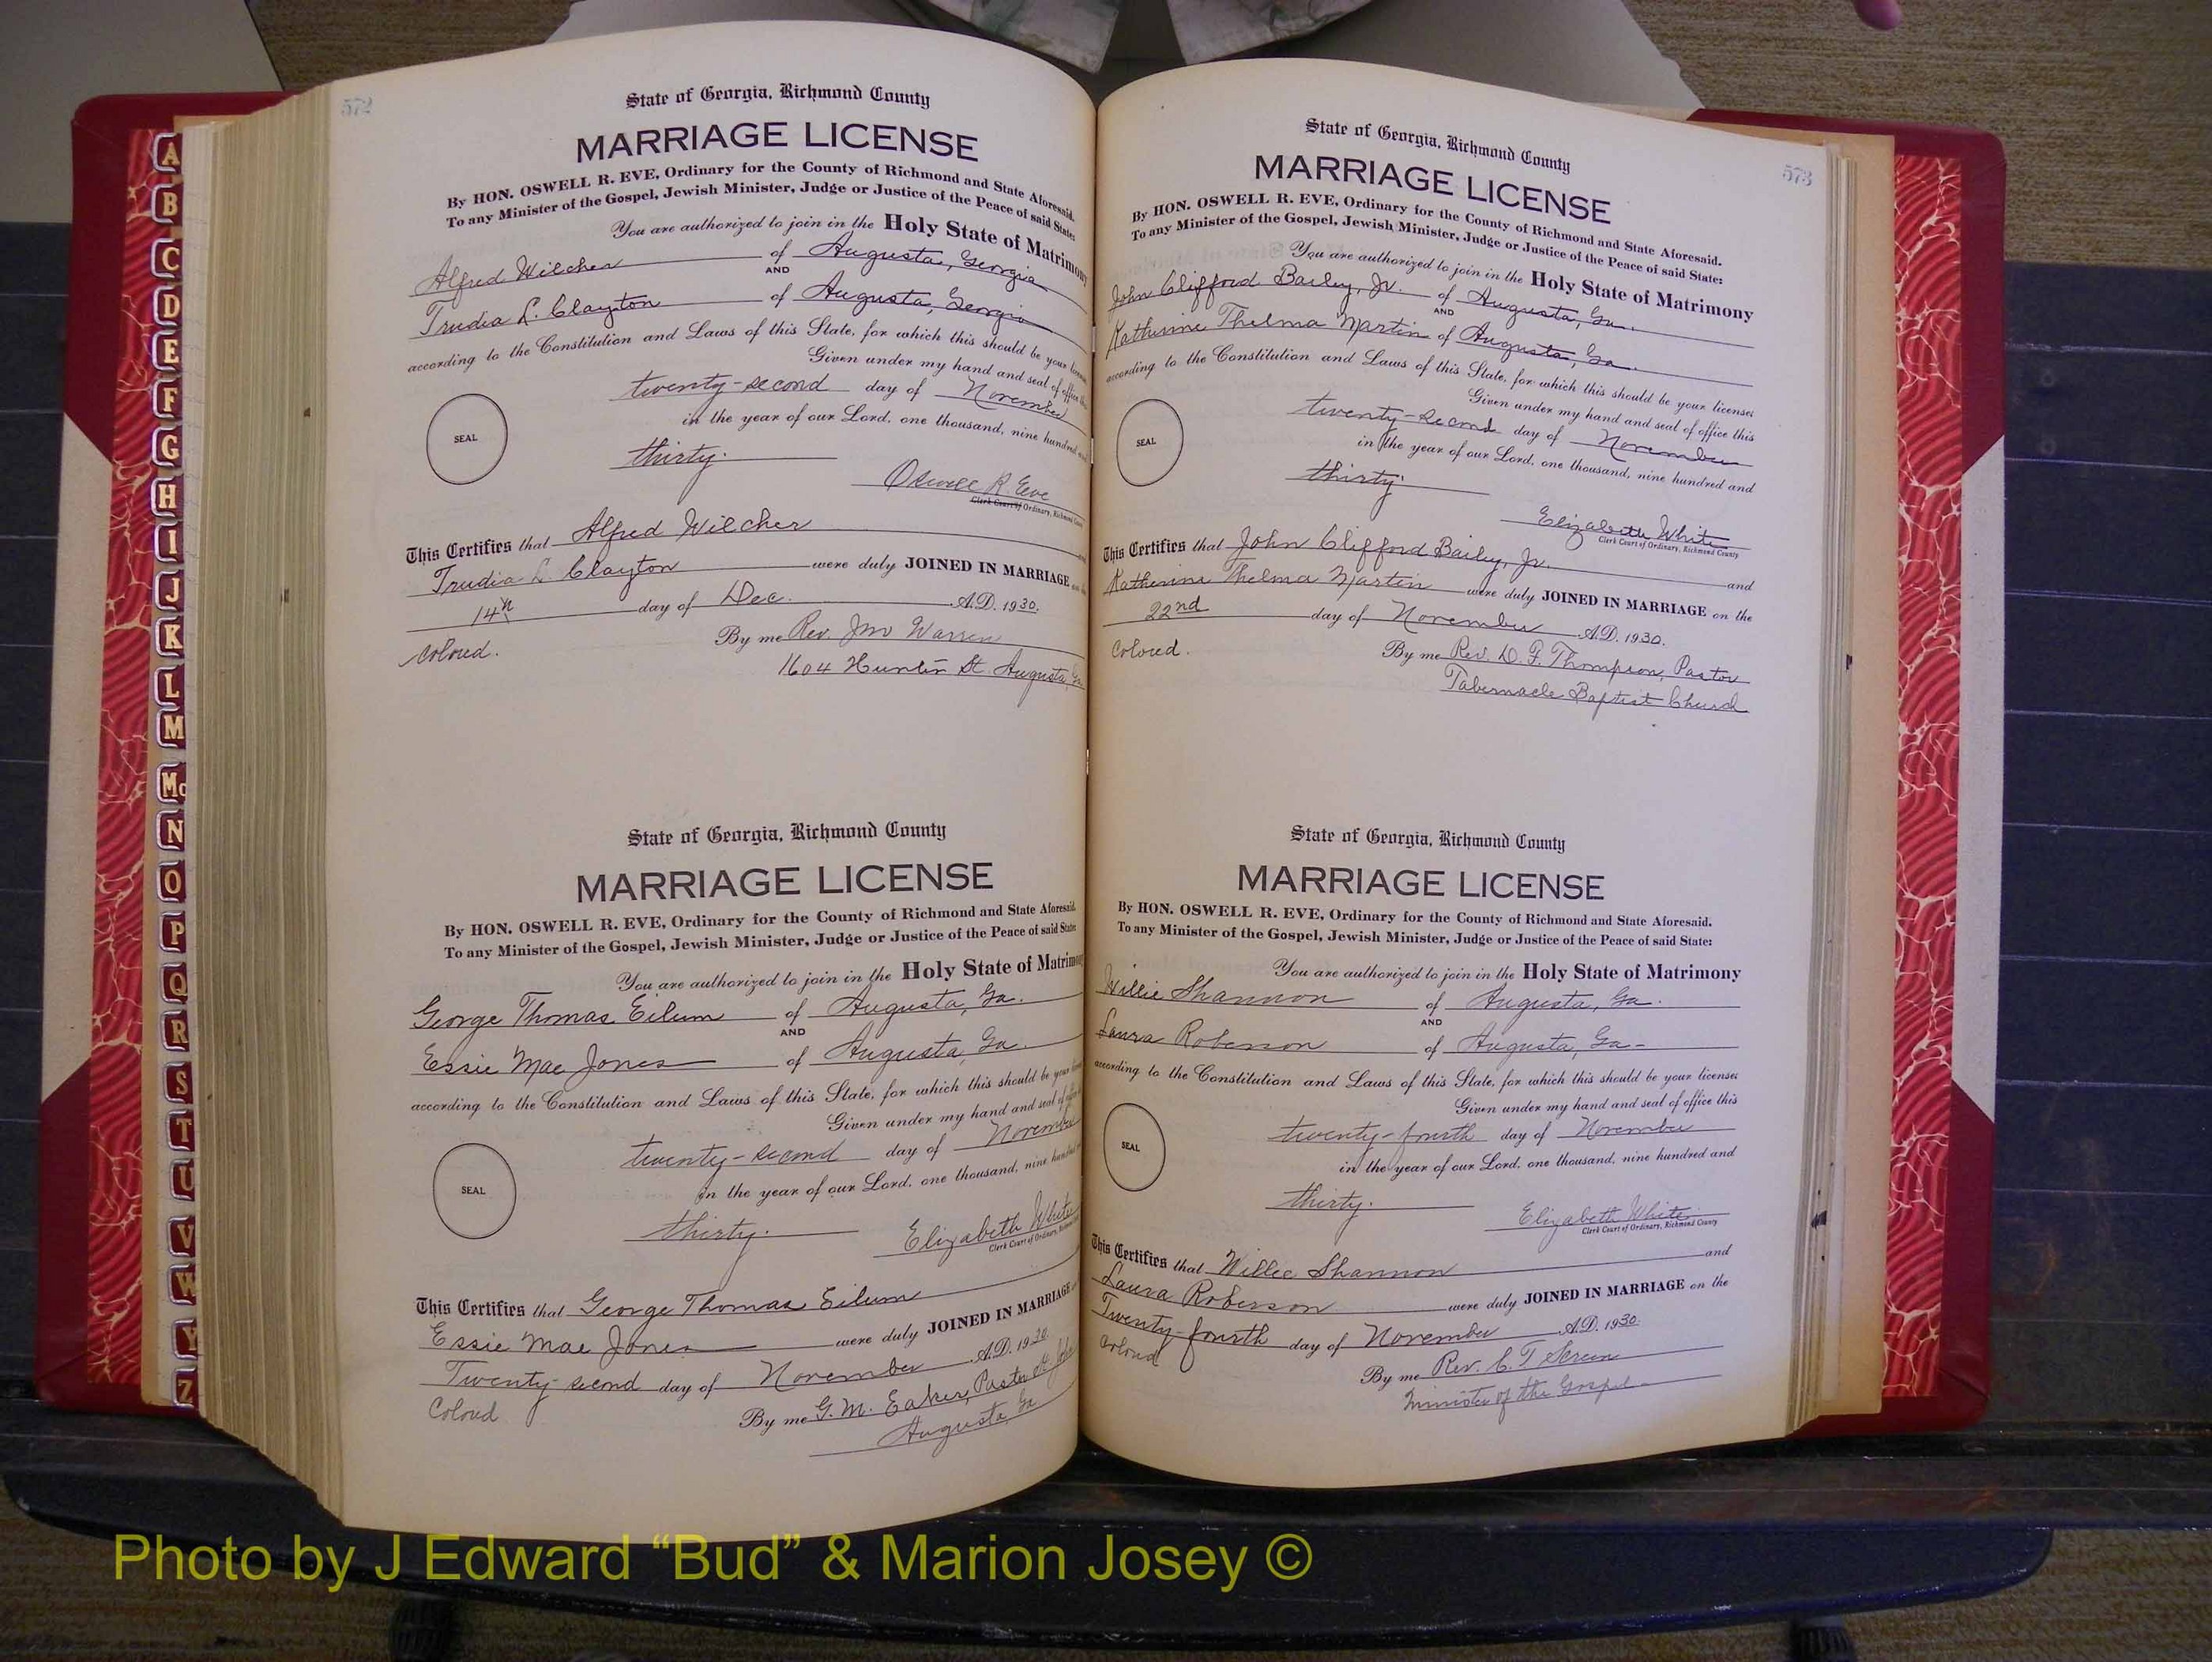 572
State of Georgia, Richmond County
MARRIAGE LICENSE
By HON. OSWELL R. EVE, Ordinary for the County of Richmond and State Aforesaid.
To any Minister of the Gospel, Jewish Minister, Judge or Justice of the Peace of said State:
You are authorized to join in the Holy State of Matrimony
Alfred Wilcher of Augusta, Georgia
AND
Trudia L. Clayton of Augusta, Georgia
according to the Constitution and Laws of this State, for which this should be your
Given under my hand and seal of office
twenty-second day of November
in the year of our Lord, one thousand, nine hundred
thirty.
SEAL
Oswell R. Eve
Clerk Court of Ordinary, Richmond
This Certifies that Alfred Wilcher
Trudia L. Clayton were duly JOINED IN MARRIAGE
14th day of Dec. A.D. 1930.
Colored.
By me Rev. Jno Warren
1604 Hunter St. Augusta, Ga.
State of Georgia, Richmond County
MARRIAGE LICENSE
By HON. OSWELL R. EVE, Ordinary for the County of Richmond and State Aforesaid.
To any Minister of the Gospel, Jewish Minister, Judge or Justice of the Peace of said State
You are authorized to join in the Holy State of Matrimony
George Thomas Eilum of Augusta, Ga.
AND
Essie Mae Jones of Augusta, Ga.
according to the Constitution and Laws of this State, for which this should be your
Given under my hand and seal of
twenty-second day of November
in the year of our Lord, one thousand, nine hundred
thirty.
SEAL
Elizabeth White
Clerk Court of Ordinary,
This Certifies that George Thomas Eilum
Essie Mae Jones were duly JOINED IN MARRIAGE
Twenty-second day of November A.D. 1930.
Colored
By me G. M. Eaker, Pastor
Augusta, Ga
573
State of Georgia, Richmond County
MARRIAGE LICENSE
By HON. OSWELL R. EVE, Ordinary for the County of Richmond and State Aforesaid.
To any Minister of the Gospel, Jewish Minister, Judge or Justice of the Peace of said State:
You are authorized to join in the Holy State of Matrimony
John Clifford Bailey, Jr. of Augusta, Ga.
AND
Katherine Thelma Martin of Augusta, Ga.
according to the Constitution and Laws of this State, for which this should be your licenses
Given under my hand and seal of office this
twenty-second day of November
in the year of our Lord, one thousand, nine hundred and
thirty.
SEAL
Elizabeth White
Clerk Court of Ordinary, Richmond County
This Certifies that John Clifford Bailey, Jr.
and
Katherine Thelma Martin were duly JOINED IN MARRIAGE on the
22nd day of November A.D. 1930.
Colored.
By me Rev. D. F. Thompson, Pastor
Tabernacle Baptist Church
State of Georgia, Richmond County
MARRIAGE LICENSE
By HON. OSWELL R. EVE, Ordinary for the County of Richmond and State Aforesaid.
To any Minister of the Gospel, Jewish Minister, Judge or Justice of the Peace of said State:
You are authorized to join in the Holy State of Matrimony
Willie Shannon of Augusta, Ga.
AND
Laura Roberson of Augusta, Ga.
according to the Constitution and Laws of this State, for which this should be your licenses
Given under my hand and seal of office this
twenty-fourth day of November
in the year of our Lord, one thousand, nine hundred and
thirty.
SEAL
Elizabeth White
Clerk Court of Ordinary, Richmond County
This Certifies that Willie Shannon and
Laura Roberson were duly JOINED IN MARRIAGE on the
Twenty-fourth day of November A.D. 1930.
Colored
By me Rev. C. T. Screen
Minister of the Gospel
A
B
C
D
E
F
G
H
I
J
K
L
M
Mc
N
O
P
Q
R
S
T
U
V
W
Y
Z
Photo by J Edward “Bud” & Marion Josey ©